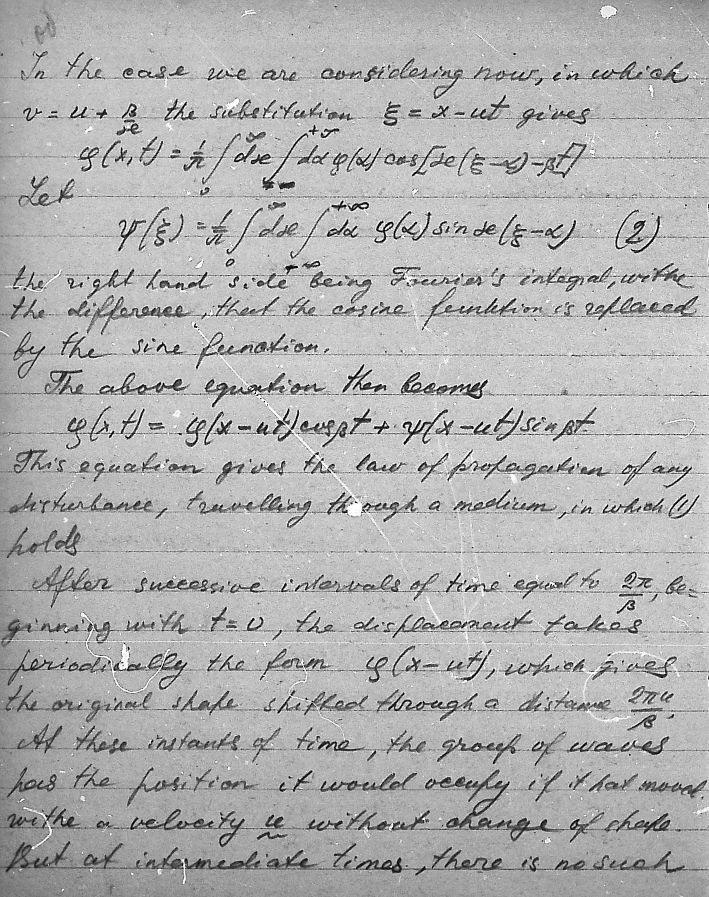 In the case we are considering now, in which
v = u + β/ϰ the substitution ξ = x - ut gives
φ(x,t) = 1/π ∫₀^∞ dϰ ∫₋∞^+∞ dα φ(α) cos[ϰ(ξ-α)-βt]
Let
ψ(ξ) = 1/π ∫₀^∞ dϰ ∫₋∞^+∞ dα φ(α) sin ϰ(ξ-α) (2)
the right hand side being Fourier's integral, withe
the difference, that the cosine funktion is replaced
by the sine function.
The above equation then becomes
φ(x,t) = φ(x-ut)cosβt + ψ(x-ut)sinβt
This equation gives the law of propagation of any
disturbance, travelling through a medium, in which (1)
holds
After successive intervals of time equal to 2π/β, be=
ginning with t=0, the displacement takes
periodically the form φ(x-ut), which gives
the original shape shifted through a distance 2πu/β.
At these instants of time, the group of waves
has the position it would occupy if it hat moved
withe a velocity u without change of shape.
But at intermediate times, there is no such